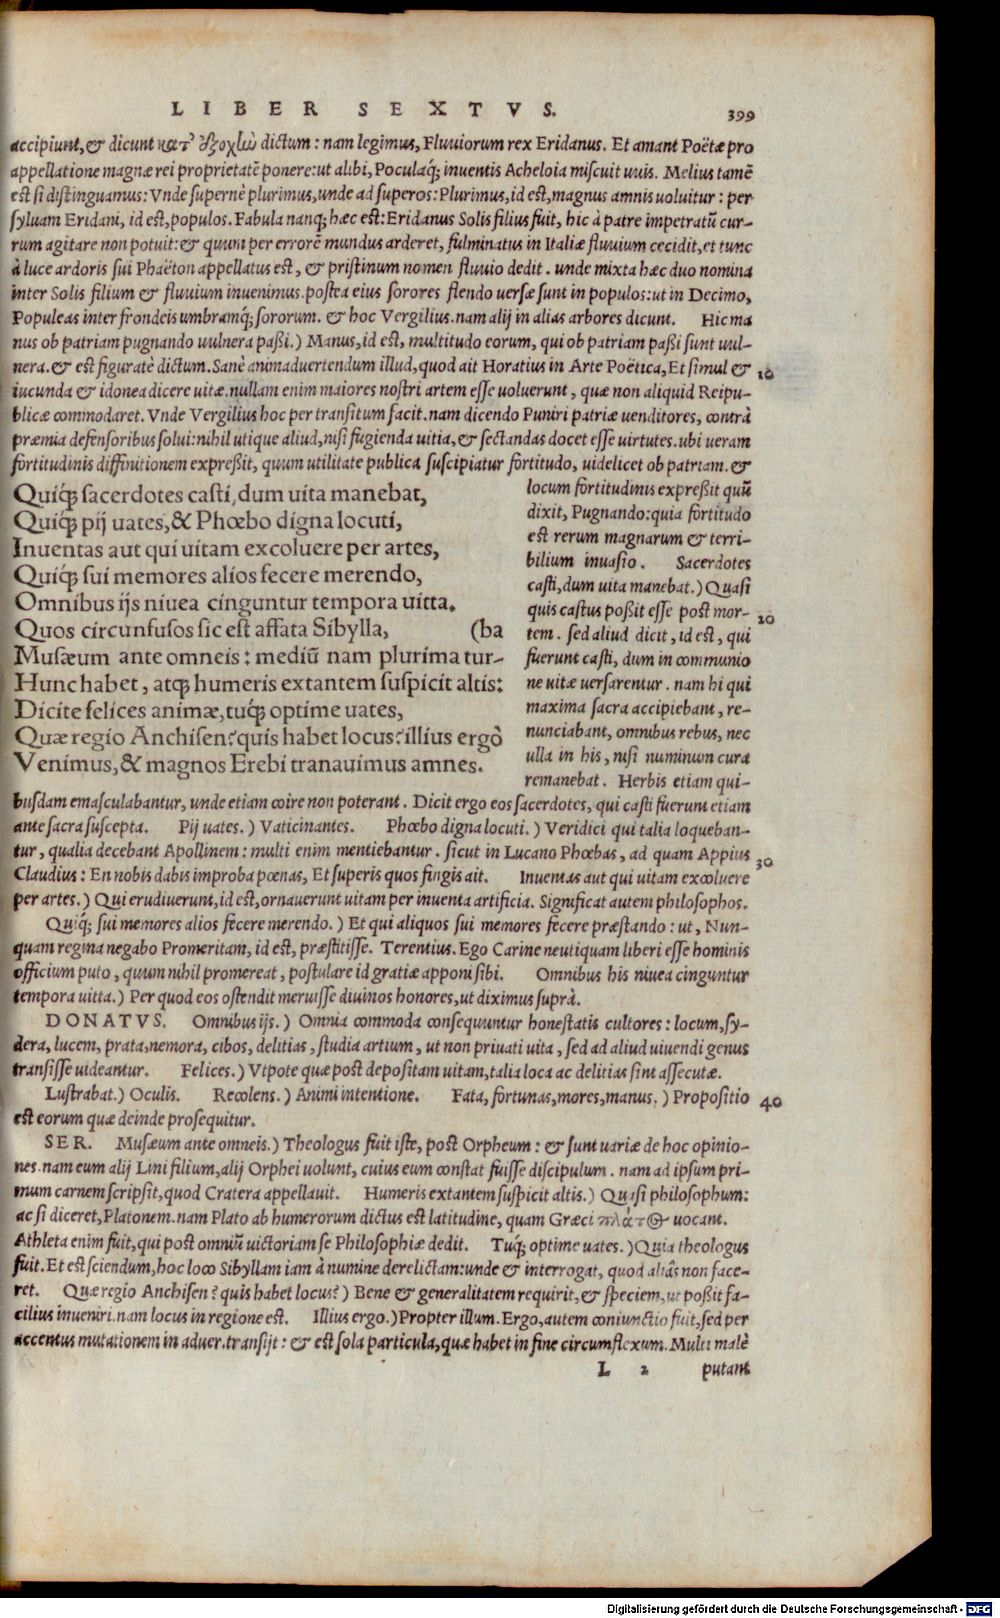 LIBER SEXTVS. 399
accipiunt, & dicunt κατ' ἐξοχὴν dictum: nam legimus, Fluuiorum rex Eridanus. Et amant Poëtæ pro
appellatione magnæ rei proprietatē ponere: ut alibi, Poculaq́; inuentis Acheloia miscuit uuis. Melius tamē
est si distinguamus: Vnde supernè plurimus, unde ad superos: Plurimus, id est, magnus amnis uoluitur: per
syluam Eridani, id est, populos. Fabula nanq; hæc est: Eridanus Solis filius fuit, hic à patre impetratū cur-
rum agitare non potuit: & quum per errorē mundus arderet, fulminatus in Italiæ fluuium cecidit, et tunc
à luce ardoris sui Phaëton appellatus est, & pristinum nomen fluuio dedit. unde mixta hæc duo nomina
inter Solis filium & fluuium inuenimus. postea eius sorores flendo uersæ sunt in populos: ut in Decimo,
Populeas inter frondeis umbramq́; sororum. & hoc Vergilius. nam alij in alias arbores dicunt. Hic ma
nus ob patriam pugnando uulnera paßi.) Manus, id est, multitudo eorum, qui ob patriam paßi sunt uul-
nera. & est figuratè dictum. Sanè animaduertendum illud, quod ait Horatius in Arte Poëtica, Et simul & 10
iucunda & idonea dicere uitæ. nullam enim maiores nostri artem esse uoluerunt, quæ non aliquid Reipu-
blicæ commodaret. Vnde Vergilius hoc per transitum facit. nam dicendo Puniri patriæ uenditores, contrà
præmia defensoribus solui: nihil utique aliud, nisi fugienda uitia, & sectandas docet esse uirtutes. ubi ueram
fortitudinis diffinitionem expreßit, quum utilitate publica suscipiatur fortitudo, uidelicet ob patriam. &
Quiq́; sacerdotes casti, dum uita manebat,
Quiq́; pij uates, & Phœbo digna locuti,
Inuentas aut qui uitam excoluere per artes,
Quiq́; sui memores alios fecere merendo,
Omnibus ijs niuea cinguntur tempora uitta.
Quos circunfusos sic est affata Sibylla, (ba
Musæum ante omneis: mediū nam plurima tur-
Hunc habet, atq; humeris extantem suspicit altis:
Dicite felices animæ, tuq́; optime uates,
Quæ regio Anchisen? quis habet locus? illius ergò
Venimus, & magnos Erebi tranauimus amnes.
locum fortitudinis expreßit quū
dixit, Pugnando: quia fortitudo
est rerum magnarum & terri-
bilium inuasio. Sacerdotes
casti, dum uita manebat.) Quasi
quis castus poßit esse post mor- 20
tem. sed aliud dicit, id est, qui
fuerunt casti, dum in communio
ne uitæ uersarentur. nam hi qui
maxima sacra accipiebant, re-
nunciabant, omnibus rebus, nec
ulla in his, nisi numinum cura
remanebat. Herbis etiam qui-
busdam emasculabantur, unde etiam coire non poterant. Dicit ergo eos sacerdotes, qui casti fuerunt etiam
ante sacra suscepta. Pij uates.) Vaticinantes. Phœbo digna locuti.) Veridici qui talia loqueban-
tur, qualia decebant Apollinem: multi enim mentiebantur. sicut in Lucano Phœbas, ad quam Appius 30
Claudius: En nobis dabis improba pœnas, Et superis quos fingis ait. Inuentas aut qui uitam excoluere
per artes.) Qui erudiuerunt, id est, ornauerunt uitam per inuenta artificia. Significat autem philosophos.
Quiq́; sui memores alios fecere merendo.) Et qui aliquos sui memores fecere præstando: ut, Nun-
quam regina negabo Promeritam, id est, præstitisse. Terentius. Ego Carine neutiquam liberi esse hominis
officium puto, quum nihil promereat, postulare id gratiæ apponi sibi. Omnibus his niuea cinguntur
tempora uitta.) Per quod eos ostendit meruisse diuinos honores, ut diximus suprà.
DONATVS. Omnibus ijs.) Omnia commoda consequuntur honestatis cultores: locum, sy-
dera, lucem, prata, nemora, cibos, delitias, studia artium, ut non priuati uita, sed ad aliud uiuendi genus
transisse uideantur. Felices.) Vtpote quæ post depositam uitam, talia loca ac delitias sint assecutæ.
Lustrabat.) Oculis. Recolens.) Animi intentione. Fata, fortunas, mores, manus.) Propositio 40
est eorum quæ deinde prosequitur.
SER. Musæum ante omneis.) Theologus fuit iste, post Orpheum: & sunt uariæ de hoc opinio-
nes. nam eum alij Lini filium, alij Orphei uolunt, cuius eum constat fuisse discipulum. nam ad ipsum pri-
mum carmen scripsit, quod Cratera appellauit. Humeris extantem suspicit altis.) Quasi philosophum:
ac si diceret, Platonem. nam Plato ab humerorum dictus est latitudine, quam Græci πλάτος uocant.
Athleta enim fuit, qui post omniū uictoriam se Philosophiæ dedit. Tuq́; optime uates.) Quia theologus
fuit. Et est sciendum, hoc loco Sibyllam iam à numine derelictam: unde & interrogat, quod aliâs non face-
ret. Quæ regio Anchisen? quis habet locus?) Bene & generalitatem requirit, & speciem, ut poßit fa-
cilius inueniri. nam locus in regione est. Illius ergo.) Propter illum. Ergo, autem coniunctio fuit, sed per
accentus mutationem in aduer. transijt: & est sola particula, quæ habet in fine circumflexum. Multi malè
L 2 putant
Digitalisierung gefördert durch die Deutsche Forschungsgemeinschaft - DFG